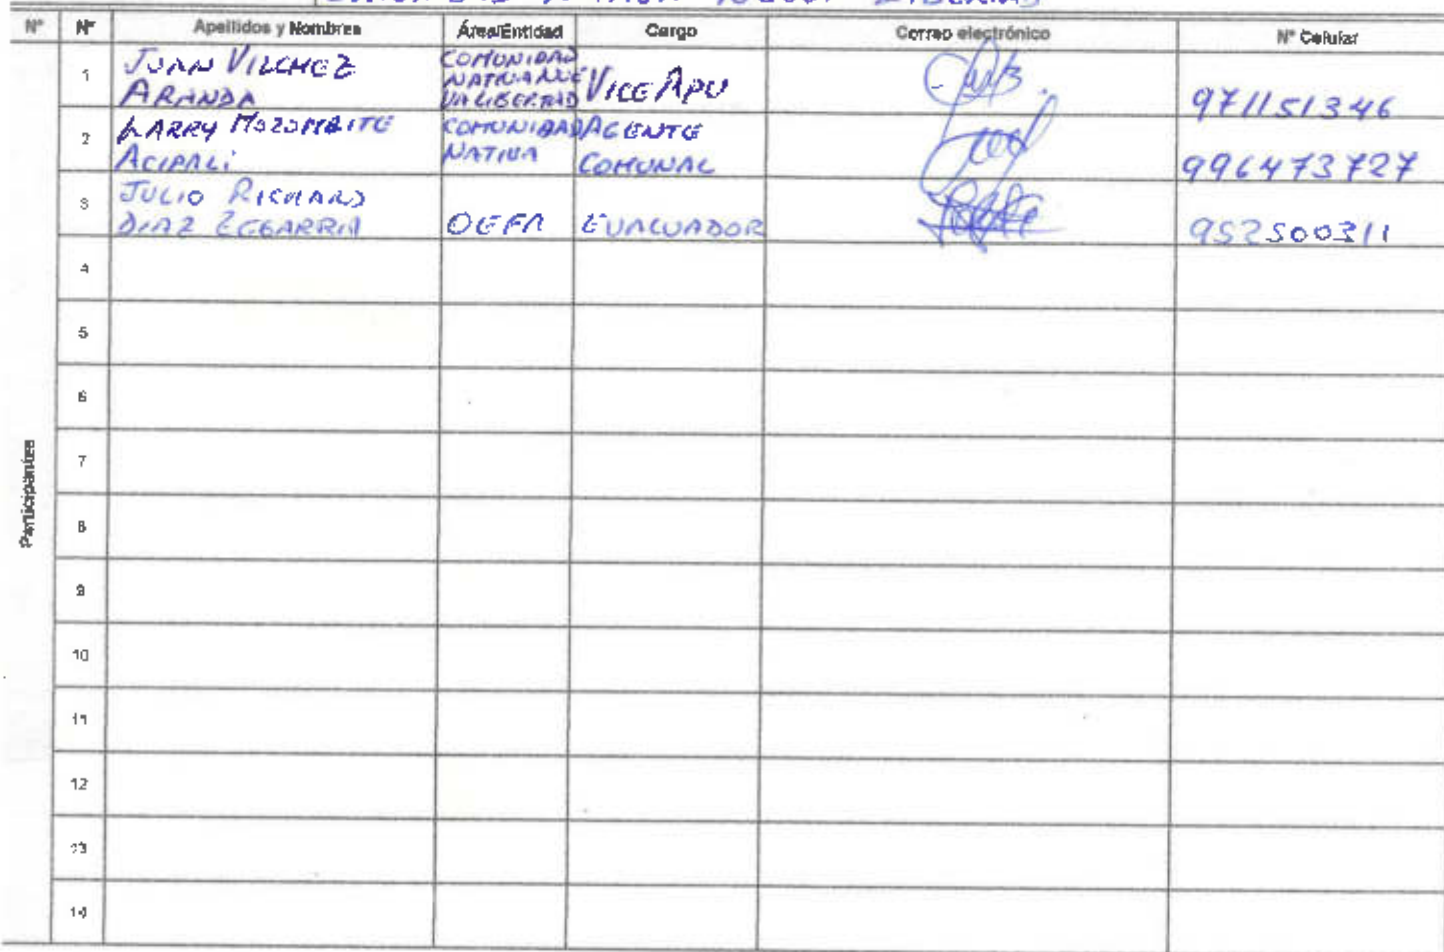 COMUNIDAD NATIVA NUEVA LIBERTAD
N° N° Apellidos y Nombres Área/Entidad Cargo Correo electrónico N° Celular
1 JUAN VILCHEZ ARANDA COMUNIDAD NATIVA NUEVA LIBERTAD VICE APU 971151346
2 LARRY MOZOMBITE ACIPALI COMUNIDAD NATIVA AGENTE COMUNAL 996473727
3 JULIO RICHARD DIAZ ZEGARRA OEFA EVALUADOR 952500311
4
5
6
7
8
9
10
11
12
13
14
Participantes